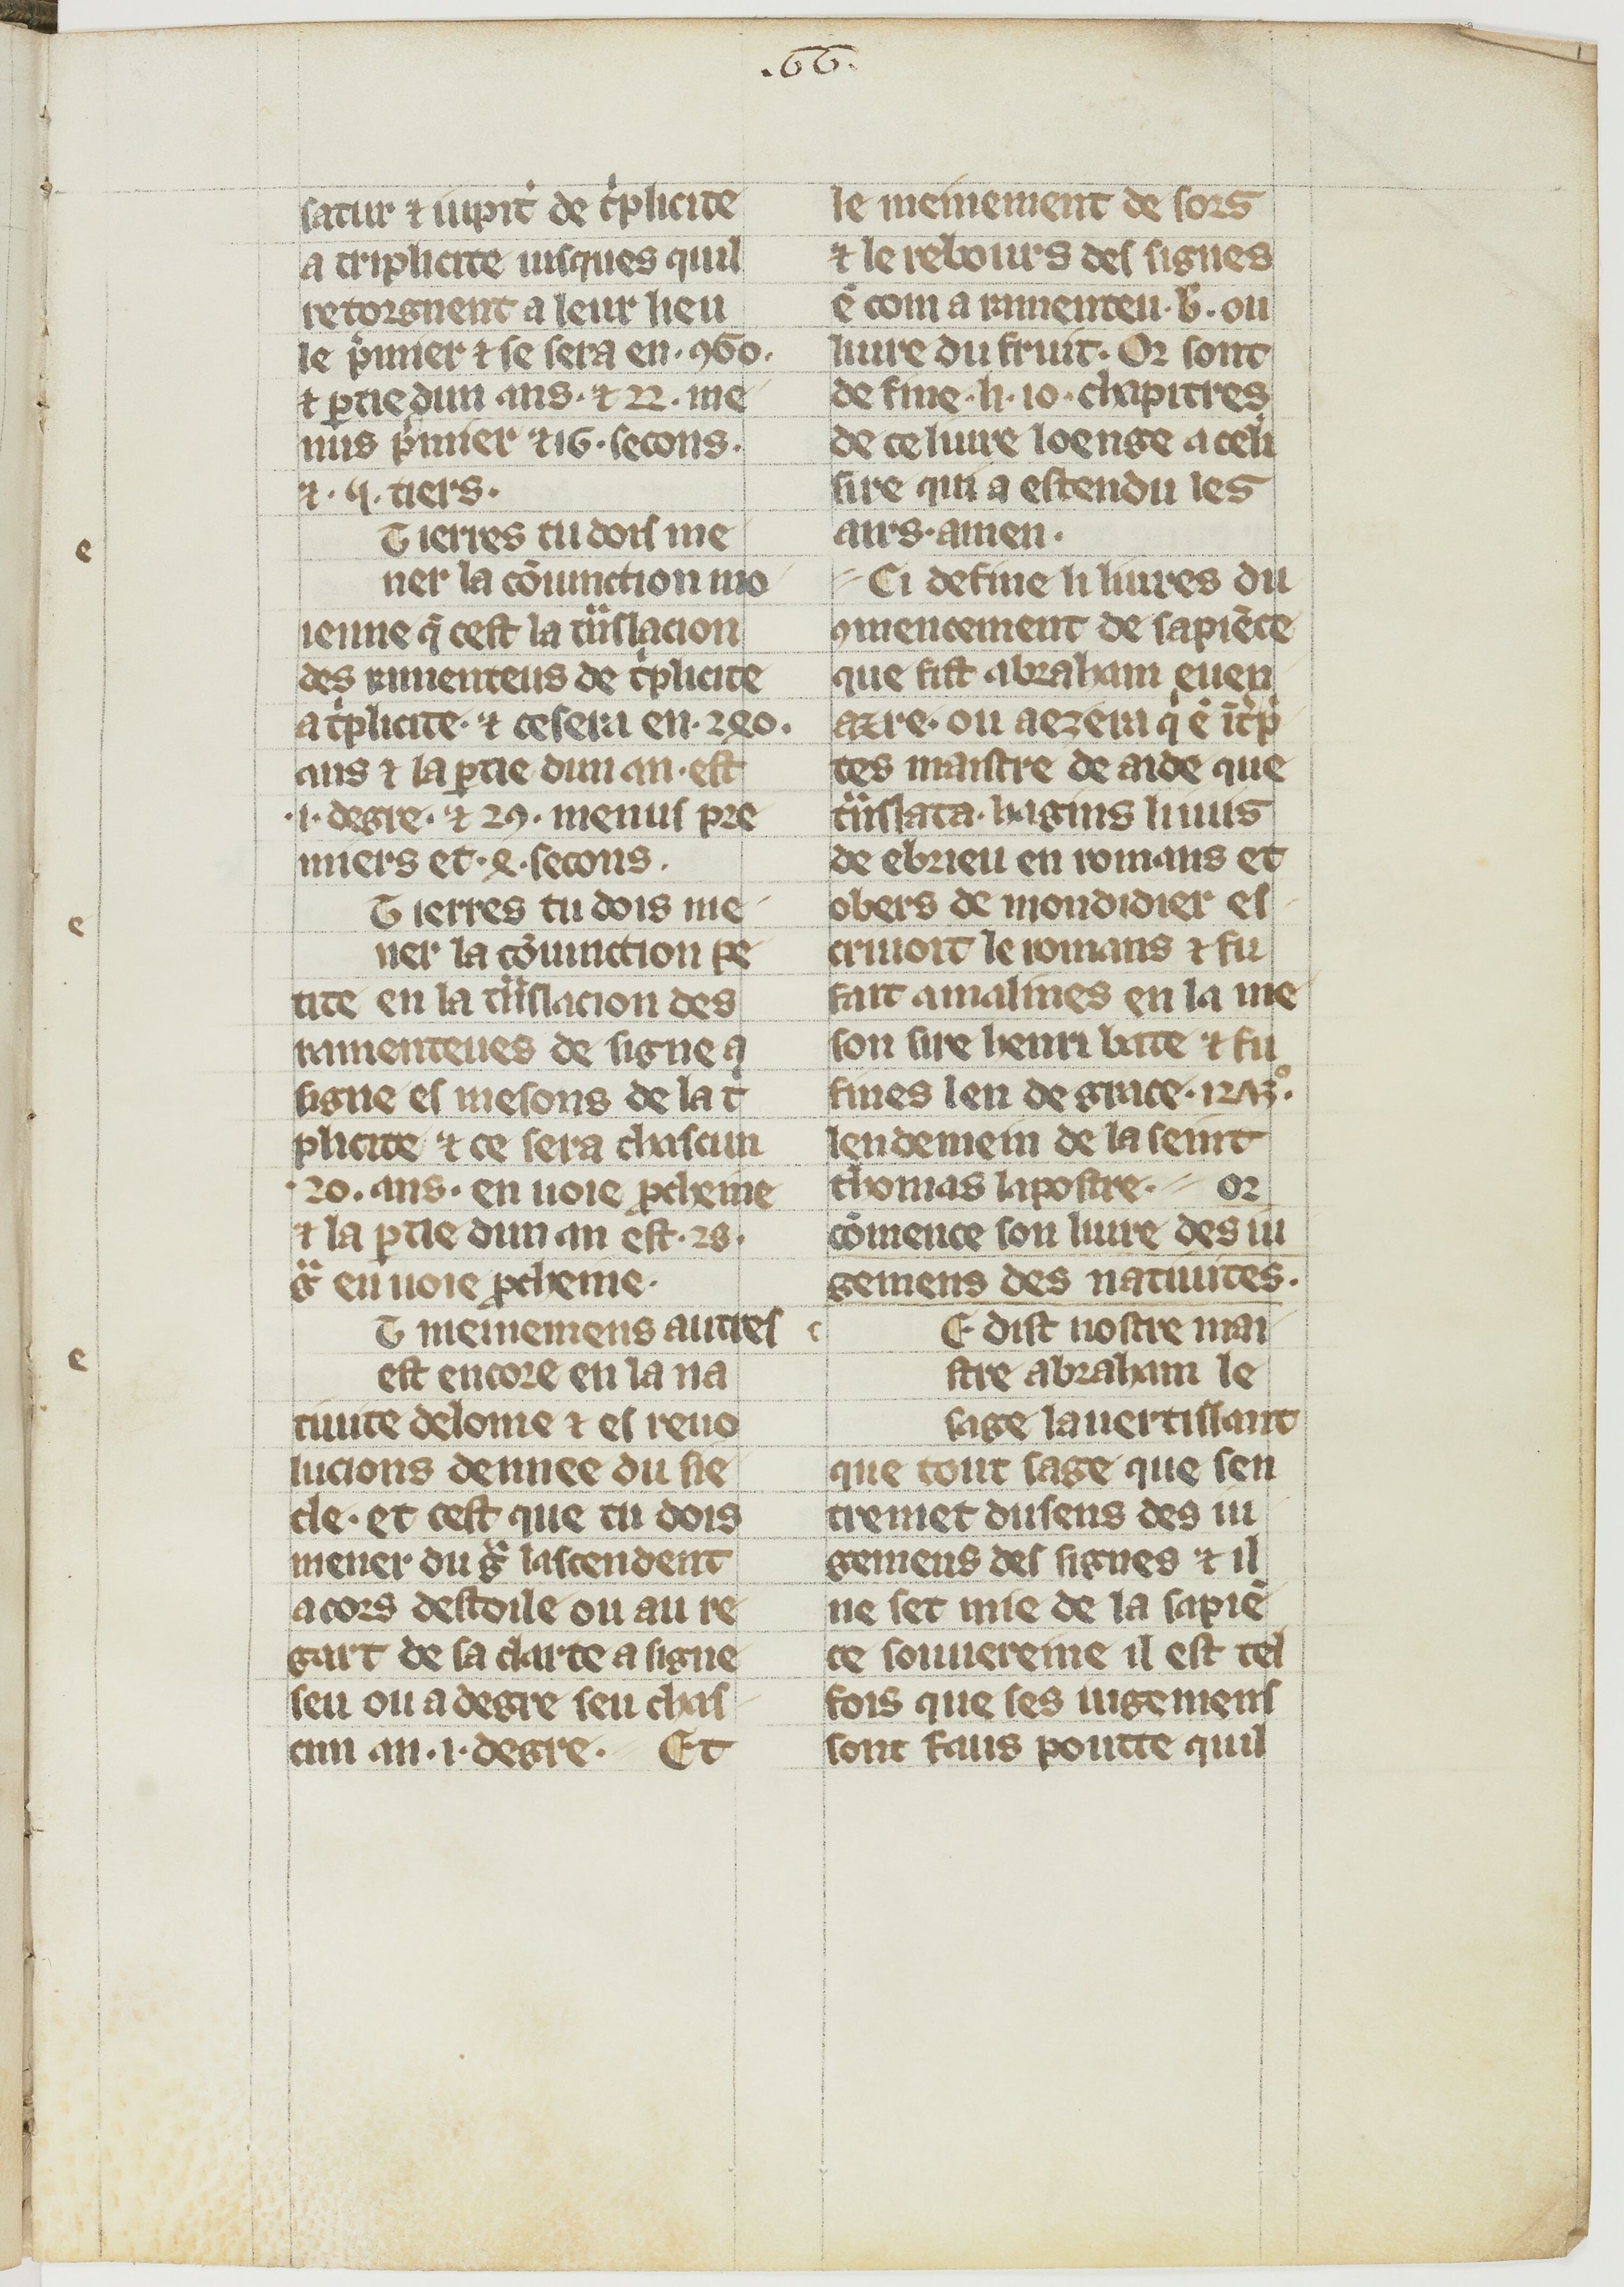 .66.
satur ⁊ iupit̕ de t̕plicite
a triplicite iusques quil
retorgnent a leur lieu
le p̕mier ⁊ se sera en · 960 ·
⁊ ꝑtie dun ans · ⁊ 22 · me
nus p̕mier ⁊ 16 · secons ·
⁊ · 4 · tiers ·
T ierres tu dois me
ner la cōiunction mo
ienne q̄ cest la tᵃnslacion
des ramenteus de t̕plicite
a t̕plicite · ⁊ ce sera en · 240 ·
ans ⁊ la ꝑtie dun an · est
· 1 · degre · ⁊ 29 · menus pre
miers et · 4 · secons ·
T ierres tu dois me
ner la cōiunction pe
tite en la tᵃnslacion des
ramenteues de signe a
signe es mesons de la t̕
plicite ⁊ ce sera chascun
· 20 · ans · en uoie ꝓcheine
⁊ la ꝑtie dun an est · 28 ·
gᵃ en uoie ꝓcheine ·
T meinemens autres
est encore en la na
tiuite delome ⁊ es reuo
lucions dennee du sie
cle · et cest que tu dois
mener du gᵃ lascendent
a cors destoile ou au re
gart de sa clarte a signe
seu ou a degre seu chas
cun an · 1 · degre · Et
le meinement de sors
⁊ le rebours des signes
ē com a ramenteu · b · ou
liure du fruit · Or sont
de fine · li · 10 · chapitres
de ce liure loenge a celi
sire qui a estendu les
airs · amen ·
Ci define li liures du
ꝯmencement de sapiēce
que fist abraham euen
azre · ou aezera q̕ ē īt̕p̕
tes maistre de aide que
tᵃnslata · hagins li iuis
de ebrieu en romans et
obers de mondidier es
criuoit le romans ⁊ fu
fait a malines en la me
son sire henri bate ⁊ fu
fines len de grace · 1273° ·
lendemein de la seint
thomas lapostre · Or
cōmence son liure des iu
gemens des natiuites ·
c E dist nostre mai
stre abraham le
sage lauertissant
que tout sage que sen
tremet du sens des iu
gemens des signes ⁊ il
ne set mie de la sapiē
ce souuereine il est tel
fois que ses iugemens
sont faus poutte quil
e
e
e